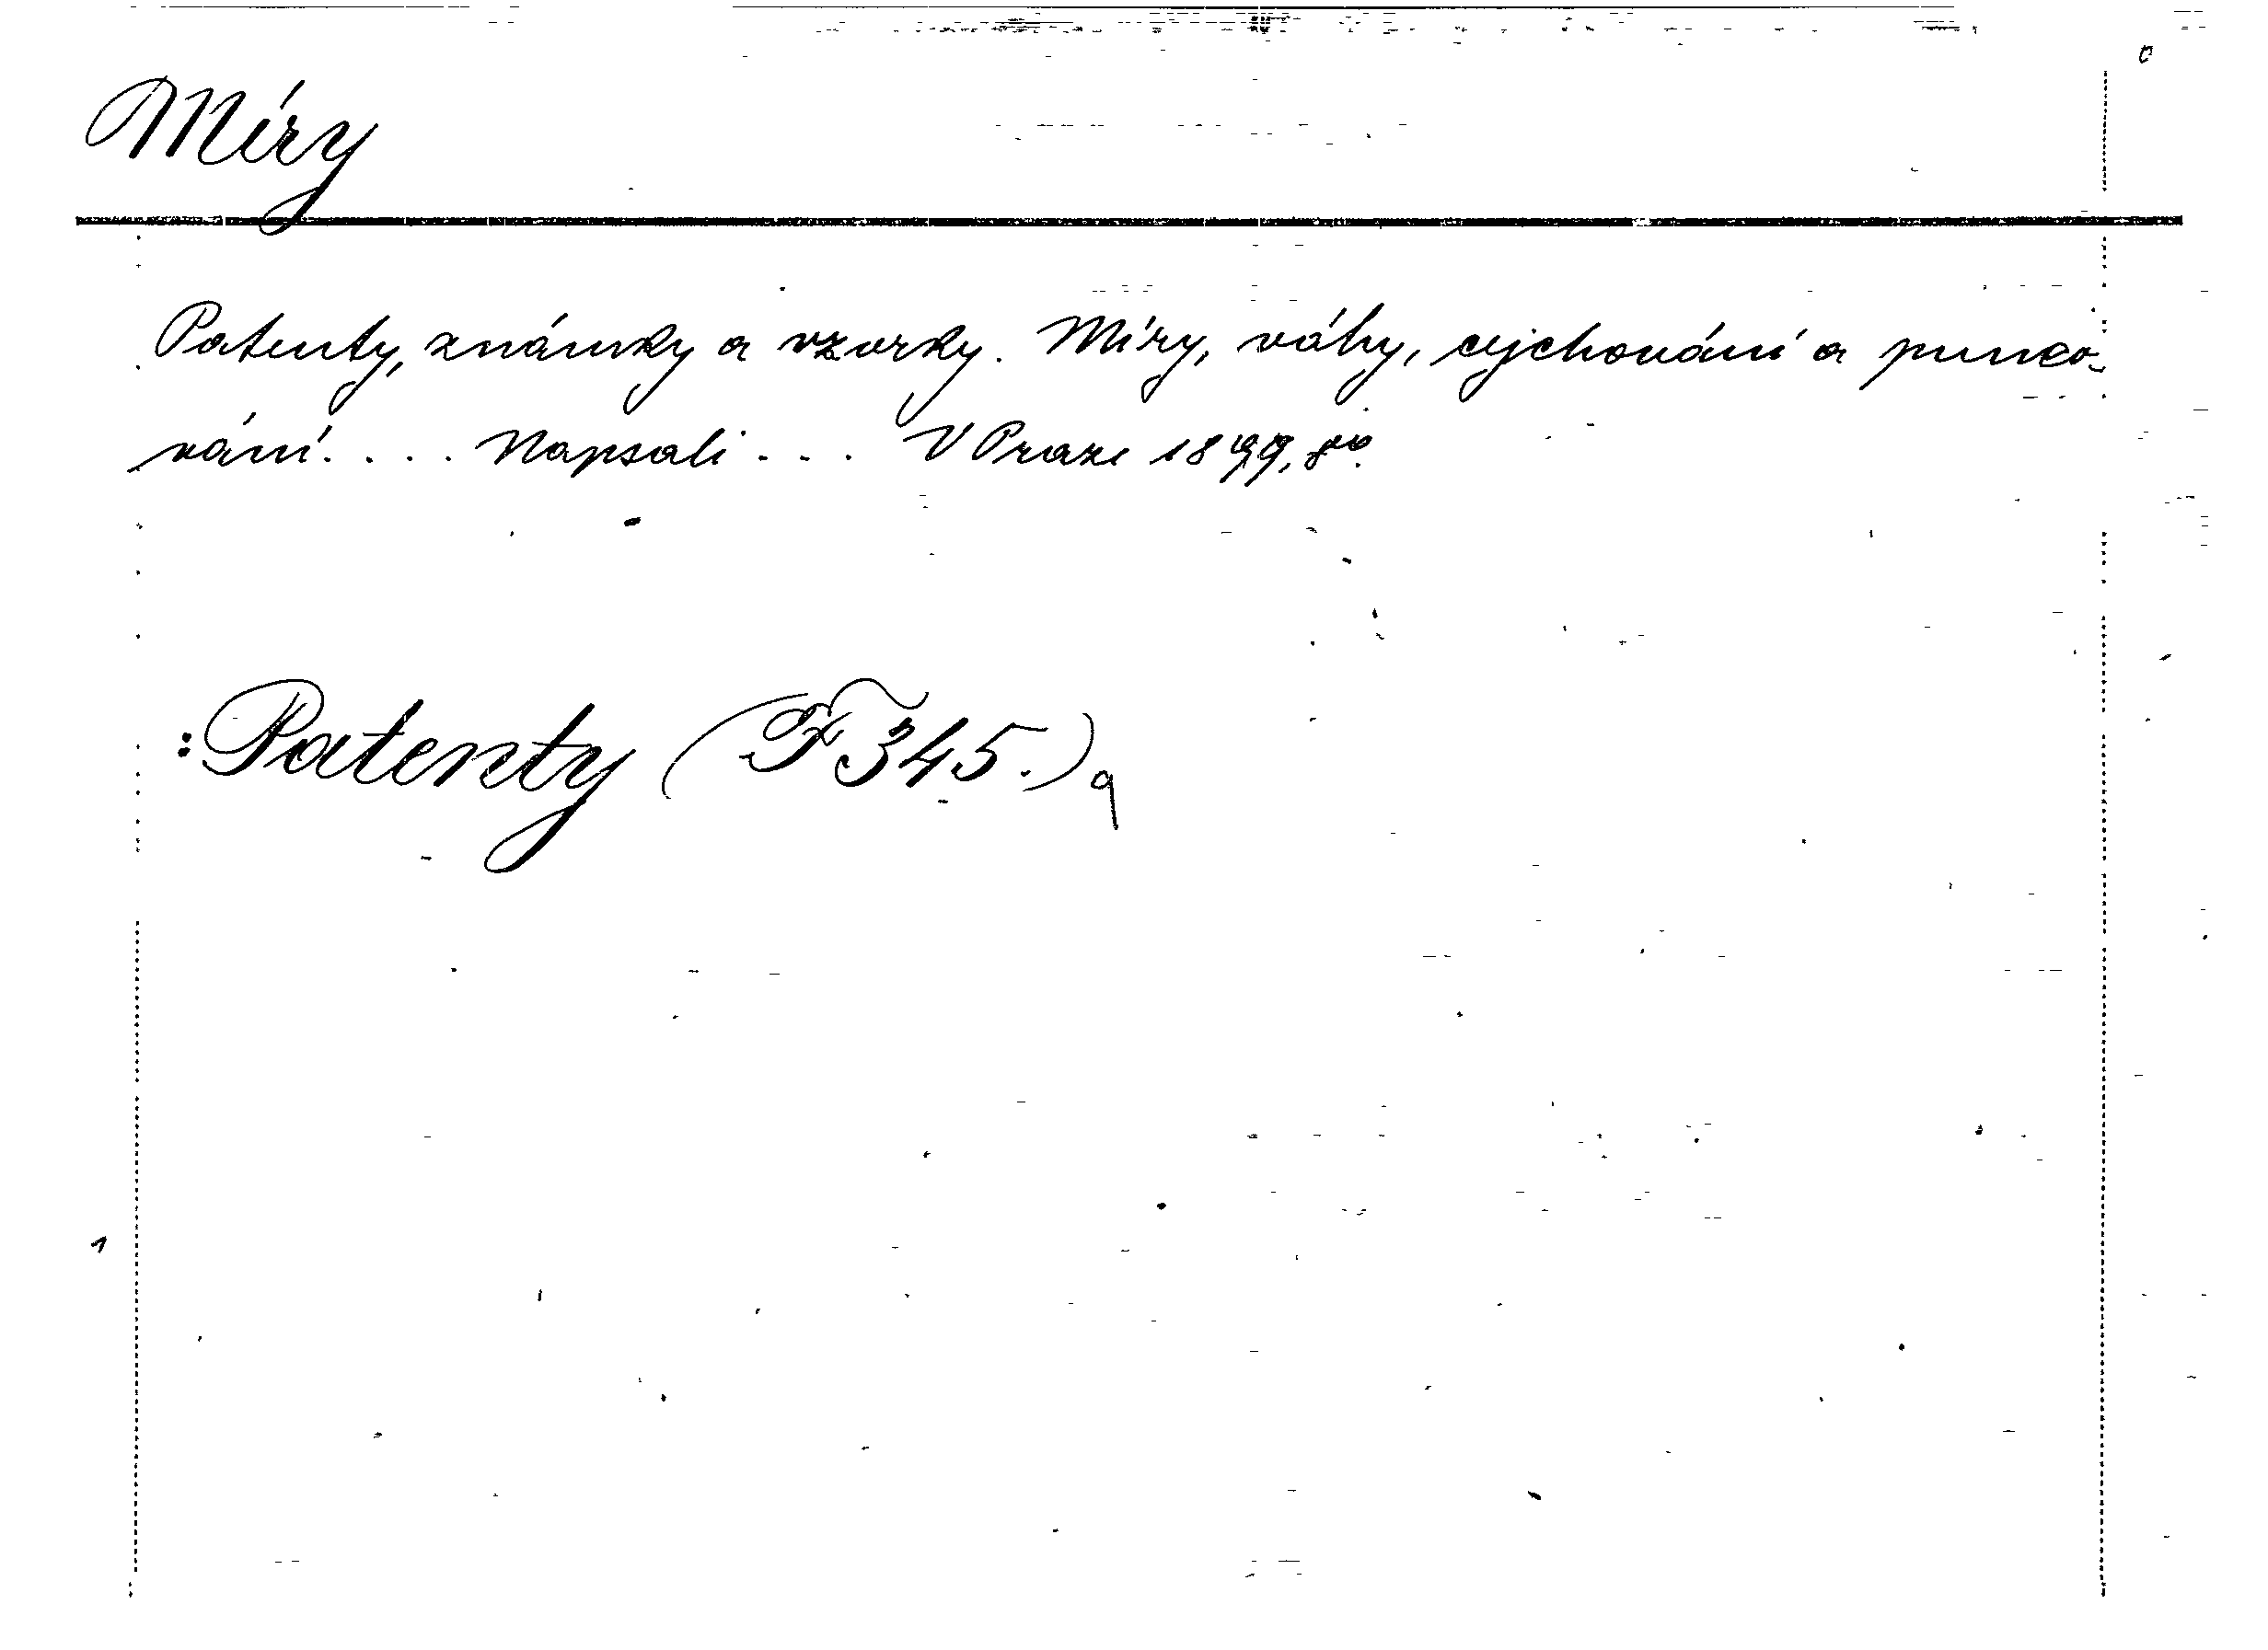 Míry
Patenty, známky a vzorky. Míry, váhy, cejchování a punco-
vání. . . . Napsali . . . V Praze 1899, 8o.
: Patenty (F 345.) q